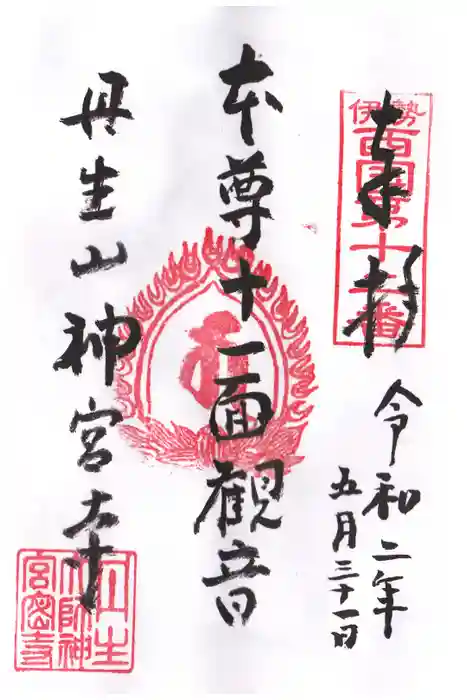 奉拝
伊勢
西国第十一番
令和二年
五月三十一日
本尊十一面観音
丹生山神宮寺